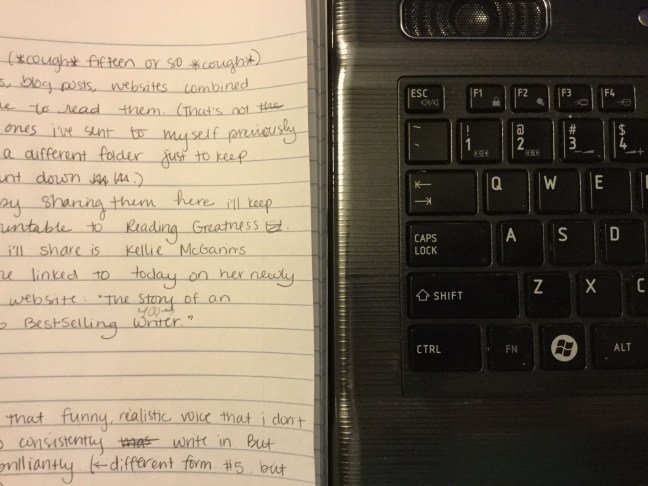 (*cough* fifteen or so *cough*)
s, blog posts, websites combined
e to read them. (That's not the
ones i've sent to myself previously
a different folder just to keep
unt down .)
by sharing them here i'll keep
untable to Reading Greatness
i'll share is Kellie McGann's
e linked to today on her newly
website. "The Story of an
Best-Selling Writer."
that funny, realistic voice that i don't
consistently write in But
brilliantly (←different form. #5. but
ESC F1 F2 F3 F4
~ ! @ # $
1 2 3 4
Q W E
CAPS LOCK A S D
SHIFT Z X C
CTRL FN ALT